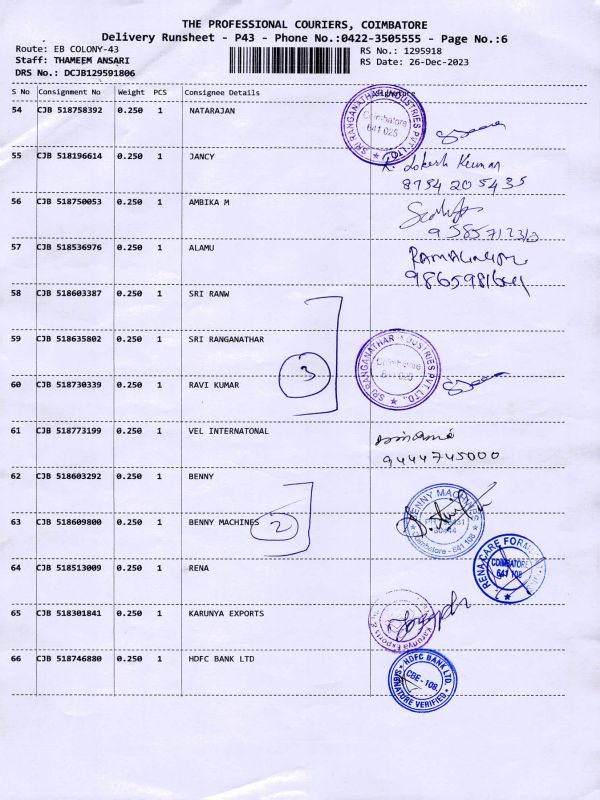 THE PROFESSIONAL COURIERS, COIMBATORE
Delivery Runsheet - P43 - Phone No.:0422-3505555 - Page No.:6
Route: EB COLONY-43
Staff: THAMEEM ANSARI
DRS No.: DCJB129591806
RS No.: 1295918
RS Date: 26-Dec-2023
S No Consignment No Weight PCS Consignee Details Signature
54 CJB 518758392 0.250 1 NATARAJAN
SRI RANGANATHAR INDUSTRIES PVT. LTD.,
Coimbatore
641 025
55 CJB 518196614 0.250 1 JANCY
K. Lokesh Kumar
8754205435
56 CJB 518750053 0.250 1 AMBIKA M
57 CJB 518536976 0.250 1 ALAMU
58 CJB 518603387 0.250 1 SRI RANW
59 CJB 518635802 0.250 1 SRI RANGANATHAR
3
SRI RANGANATHAR INDUSTRIES PVT. LTD.,
Coimbatore
641 025
60 CJB 518730339 0.250 1 RAVI KUMAR
61 CJB 518773199 0.250 1 VEL INTERNATONAL
9444745000
62 CJB 518603292 0.250 1 BENNY
63 CJB 518609800 0.250 1 BENNY MACHINES
2
BENNY MACHINES
Coimbatore - 641 108
64 CJB 518513009 0.250 1 RENA
RENA CARE
COIMBATORE
641 108
65 CJB 518301841 0.250 1 KARUNYA EXPORTS
Karunya Exports
66 CJB 518746880 0.250 1 HDFC BANK LTD
HDFC BANK LTD.
CBE - 108.
SIGNATURE VERIFIED